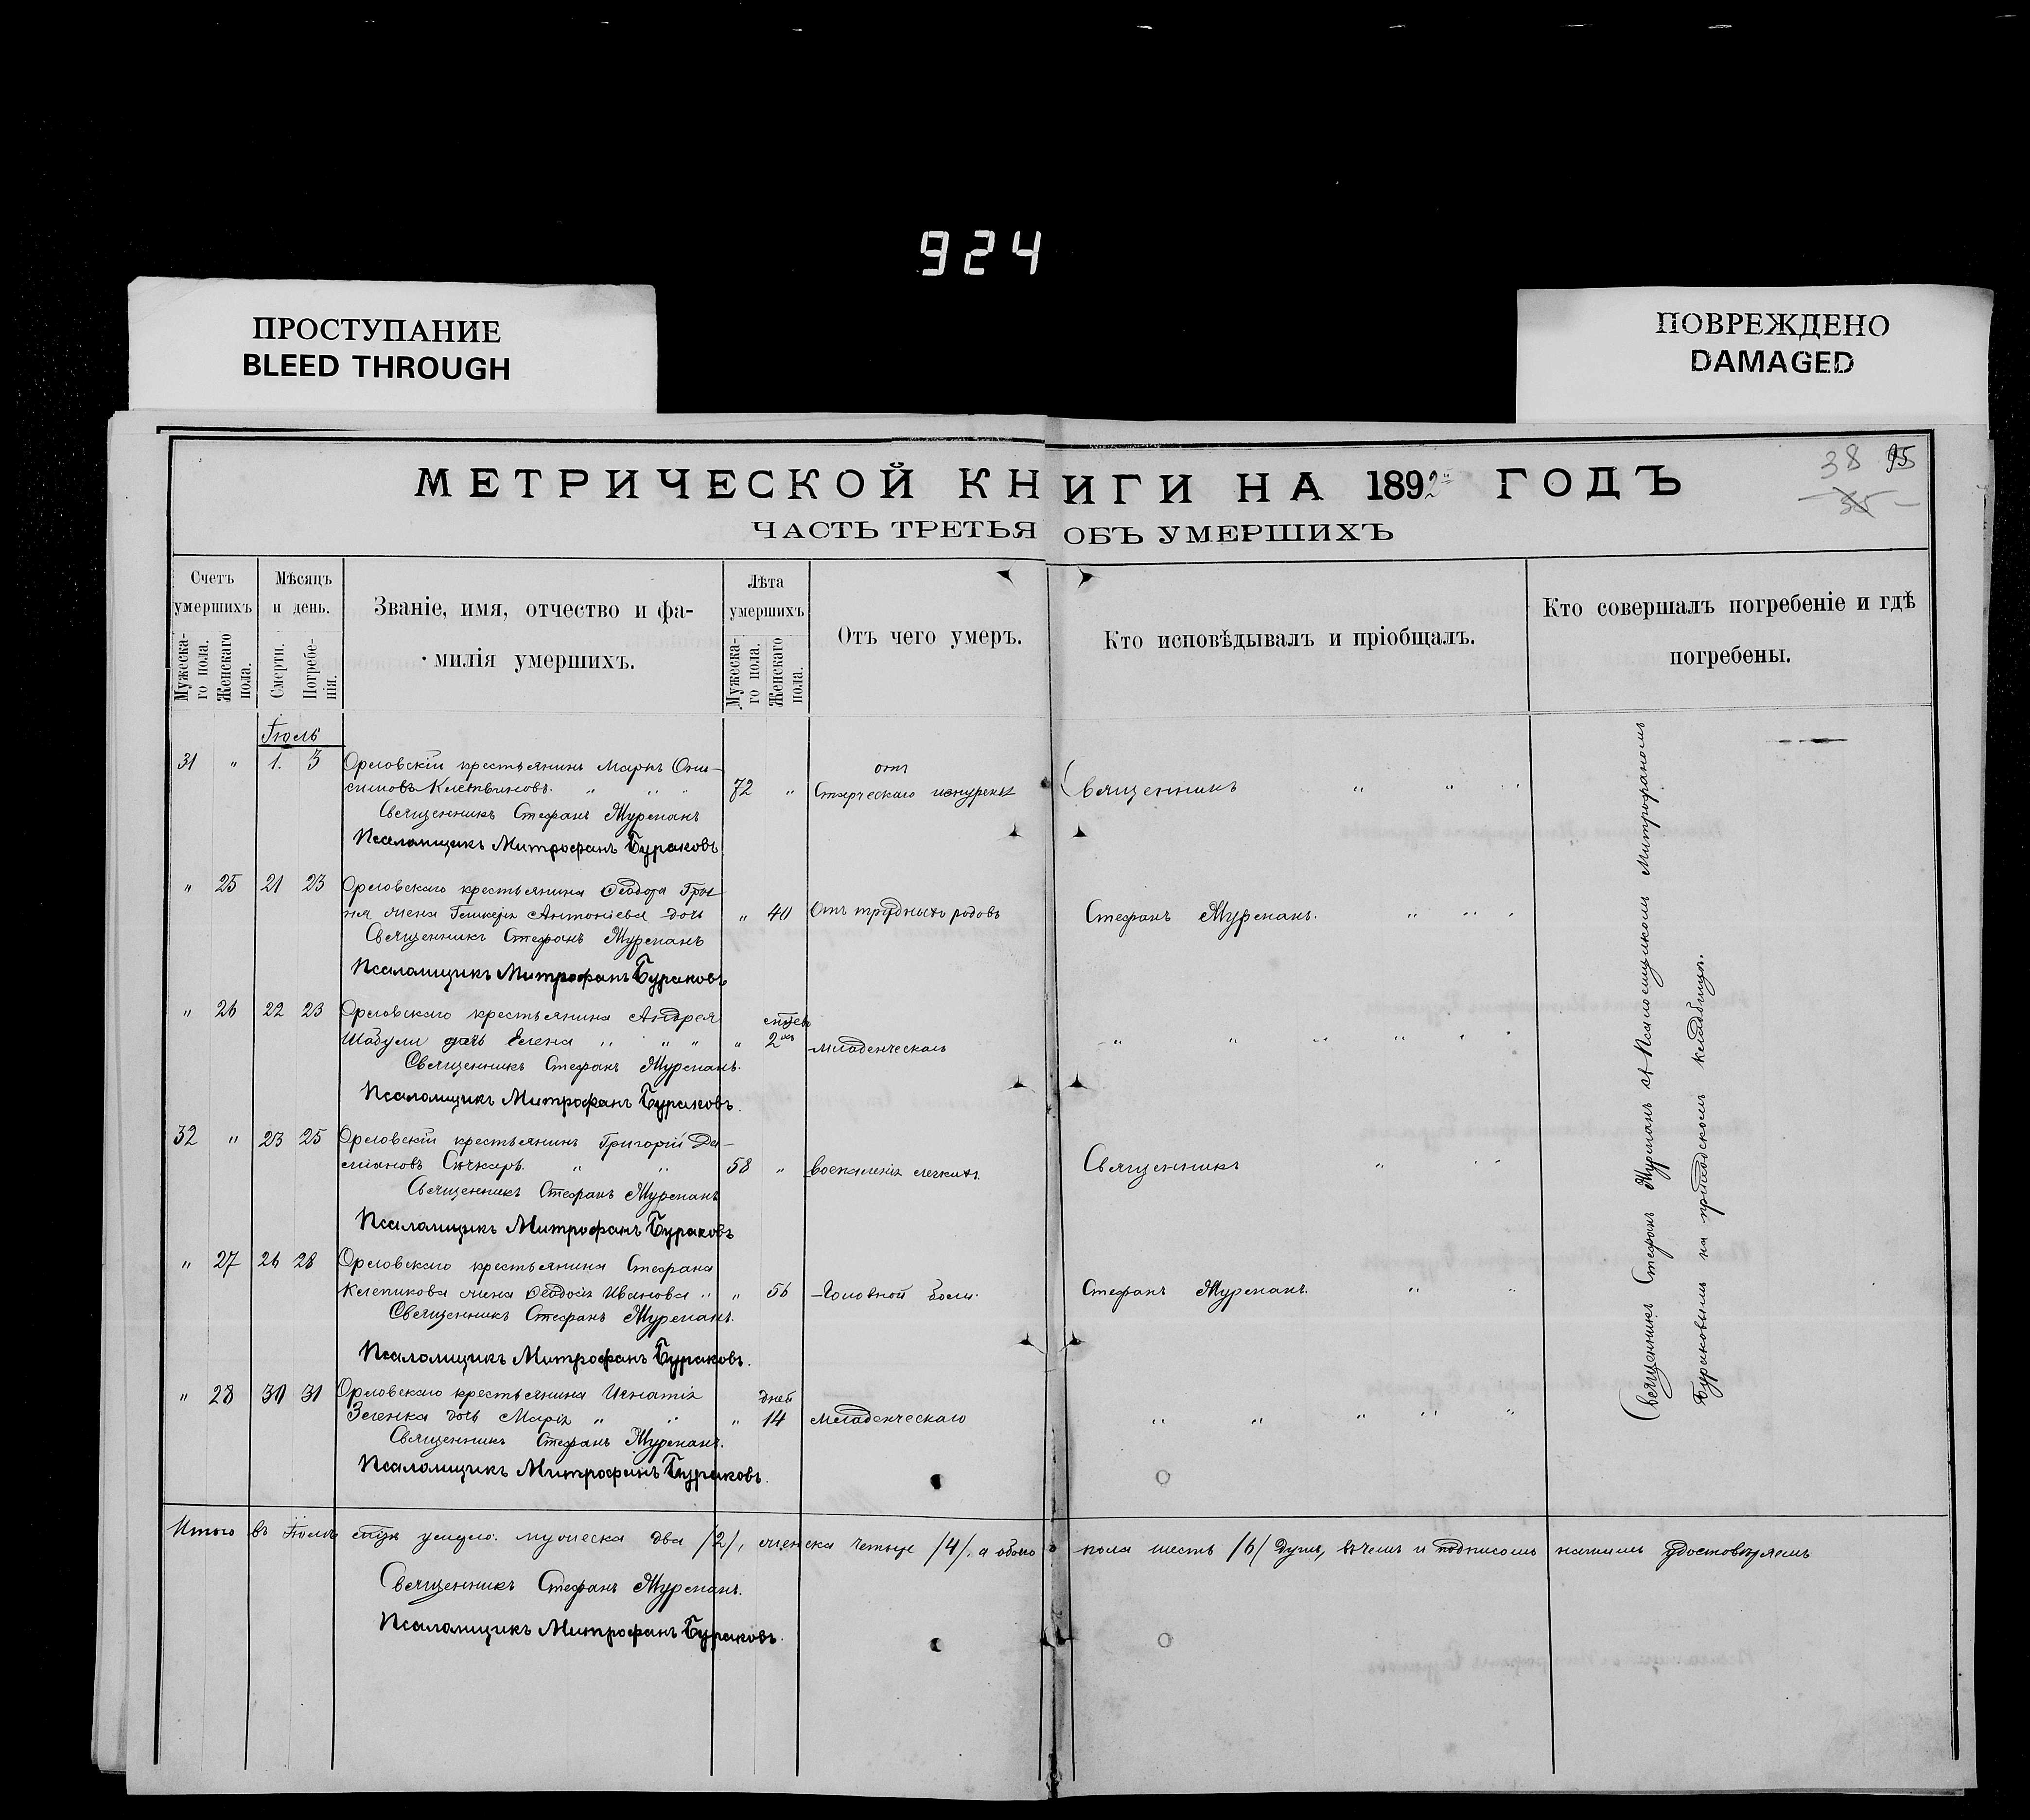 924
ПРОСТУПАНИЕ
BLEED THROUGH
ПОВРЕЖДЕНО
DAMAGED
38 95
35
МЕТРИЧЕСКОЙ КНИГИ НА 1892 ГОДЪ
ЧАСТЬ ТРЕТЬЯ ОБЪ УМЕРШИХЪ
Счетъ умершихъ
Мужеска-го пола.
Женскаго пола.
Мѣсяцъ и день.
Смерти.
Погребе-нія.
Званіе, имя, отчество и фа-
милія умершихъ.
Лѣта умершихъ
Мужеска-го пола.
Женскаго пола.
Отъ чего умеръ.
Кто исповѣдывалъ и пріобщалъ.
Кто совершалъ погребеніе и гдѣ
погребены.
Іюль
31 " 1. 3 Орловскій крестьянинъ Маркъ Они-
симовъ Клетвиновъ. " " " 72 " отъ Старческаго Священникъ " " "
Священникъ Стефанъ Мурманъ
Псаломщикъ Митрофанъ Бураковъ
" 25 21 23 Орловскаго крестьянина Ѳеодора
жена Антоніева дочь " 40 Отъ трудныхъ родовъ Стефанъ Мурманъ. " " "
Священникъ Стефанъ Мурманъ
Псаломщикъ Митрофанъ Бураковъ
" 26 22 23 Орловскаго крестьянина Андрея
Шабули дочь Елена " " " " 2 младенческой " " " " " "
Священникъ Стефанъ Мурманъ.
Псаломщикъ Митрофанъ Бураковъ.
32 " 23 25 Орловскій крестьянинъ Григорій Да-
міановъ Сѣчкарь. " " 58 " Воспаленія легкихъ. Священникъ " " "
Священникъ Стефанъ Мурманъ
Псаломщикъ Митрофанъ Бураковъ
" 27 26 28 Орловскаго крестьянина Стефана
Клепикова жена Ѳеодосія Иванова " " 56 Головной боли. Стефанъ Мурманъ. " "
Священникъ Стефанъ Мурманъ.
Псаломщикъ Митрофанъ Бураковъ.
" 28 30 31 Орловскаго крестьянина Игнатія
Зеленка дочь Марія " " " дней 14 Младенческаго " " " " "
Священникъ Стефанъ Мурманъ.
Псаломщикъ Митрофанъ Бураковъ.
Священникъ Стефанъ Мурманъ съ Псаломщикомъ Митрофаномъ
Бураковымъ на приходскомъ кладбищѣ.
Итого въ Іюлѣ умерло: мужеска два /2/, женска четыре /4/, а обоего пола шесть /6/ душъ, въ чемъ и подписомъ нашимъ удостовѣряемъ
Священникъ Стефанъ Мурманъ.
Псаломщикъ Митрофанъ Бураковъ.